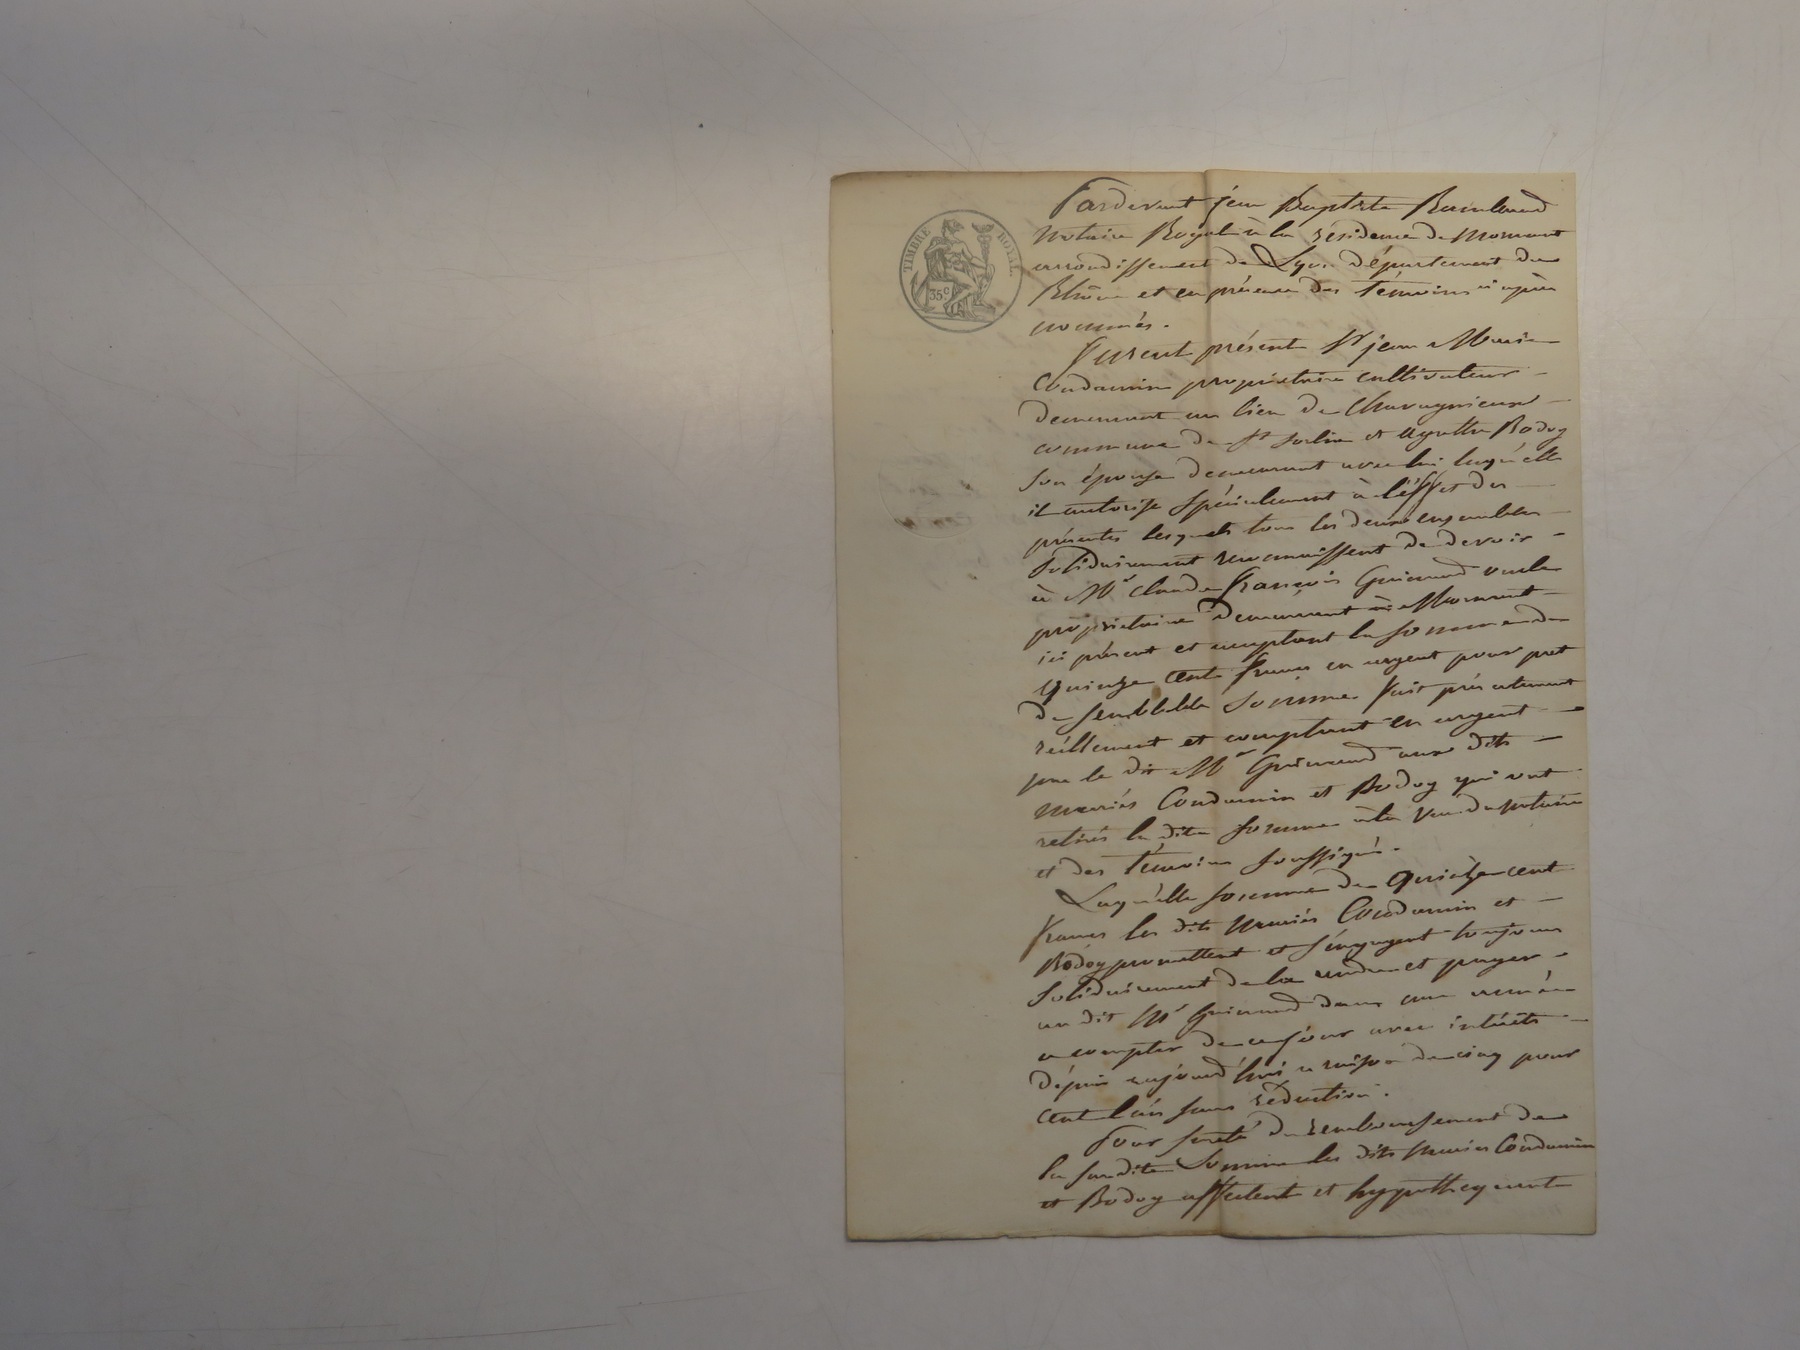 TIMBRE ROYAL
35c
Pardevant jean Baptiste Raimbaud
Notaire Royal à la résidence de Mornant
arrondissement de Lyon département du
Rhône et en présence des témoins ci après
nommés.
Furent présent Sr jean Marie
Condamin propriétaire cultivateur
demeurant au lieu de Chavagnieux
commune de St Sorlin et Agathe Bodoy
son épouse demeurant avec lui laquelle
il autorise spécialement à l'éffet des
présentes lesquels tous les deux ensembles
solidairement reconnaissent de devoir
à Mr Claude François Guinand
propriétaire demeurant à Mornant
ici présent et acceptant la somme de
Quinze cent francs en argent pour pret
de semblable somme fait présentement
réellement et comptant en argent
par le dit Mr Guinand aux dits
mariés Condamin et Bodoy qui ont
retirés la dite somme à la vue du notaire
et des témoins soussignés.
Laquelle somme de Quinze cent
francs les dits mariés Condamin et
Bodoy promettent et s'engagent toujours
solidairement de la rendre et payer
au dit Mr Guinand dans une année
a compter de ce jour avec intérêts
dépuis aujourd'hui a raison de cinq pour
cent l'an sans réduction.
Pour sureté du remboursement de
la susdite somme les dits mariés Condamin
et Bodoy affectent et hypothequent